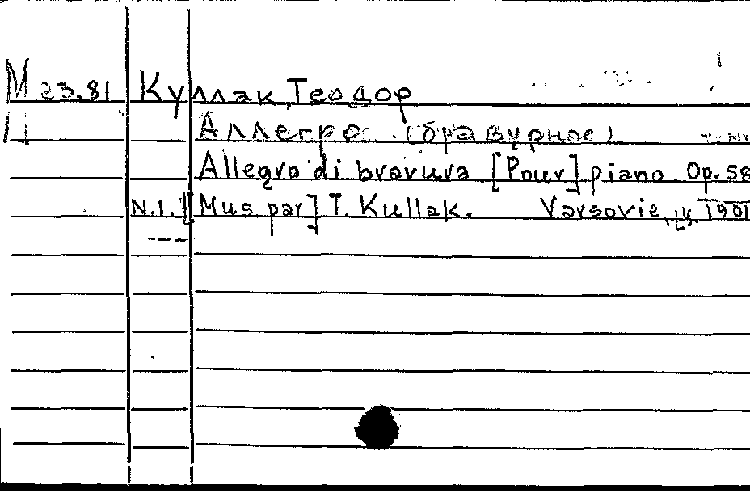 М 23.81 Куллак, Теодор
Ц Аллегро (бравурное)
Allegro di bravura [Pour] piano. Op. 58
N.1. [Mus. par] T. Kullak. Varsovie, 1901